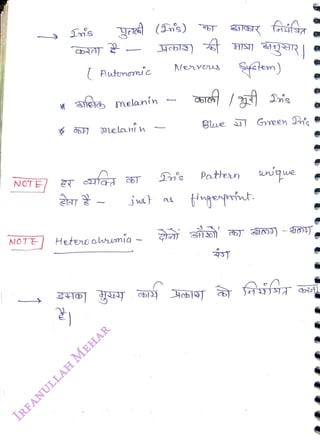 → Iris पुतली (Iris) का आकार नियंत्रित
करता है - प्रकाश की मात्रा अनुसार |
( Autonomic Nervous System)
* अधिक melanin - काली / भूरी Iris
* कम melanin - Blue या Green Iris
NOTE हर व्यक्ति का Iris Pattern unique
होता है - just as fingerprint.
NOTE Heterochromia - दोनों आँखों का अलग-अलग
रंग
→ इसका मुख्य कार्य प्रकाश को नियंत्रित करना
है |
IRFANULLAH MEHAR